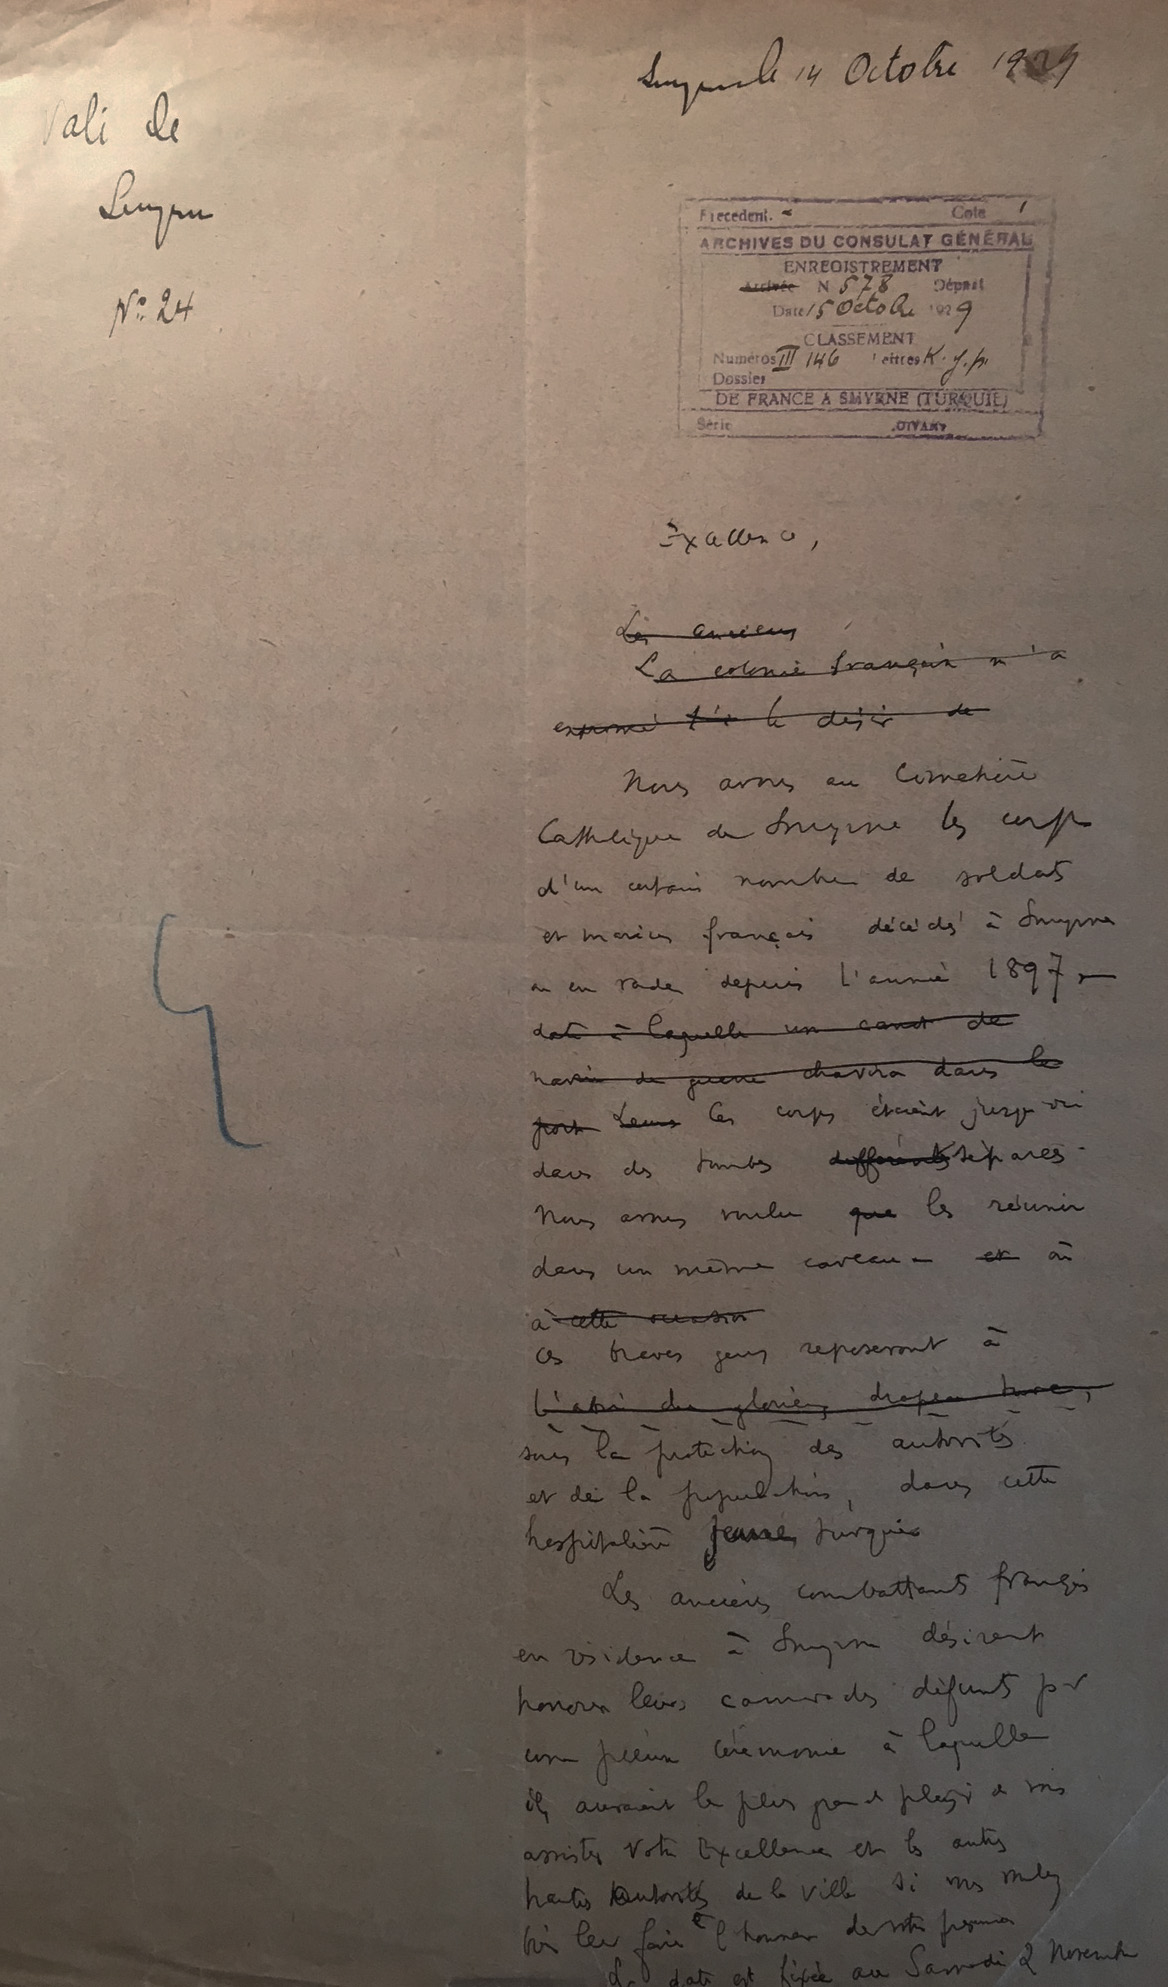 Smyrne le 14 Octobre 1929
Vali de
Smyrne
N° 24
Précédent. - Cote 1
ARCHIVES DU CONSULAT GÉNÉRAL
ENREGISTREMENT
Arrivée N 578 Départ
Date 15 Octobre 1929
CLASSEMENT
Numéros III 146 Lettres K. j. p.
Dossier
DE FRANCE A SMYRNE (TURQUIE)
Série
Excellence,
Les anciens
La colonie française m'a
exprimé le désir de
Nous avons au Cimetière
Catholique de Smyrne les corps
d'un certain nombre de soldats
et marins français décédés à Smyrne
ou en rade depuis l'année 1897,
date à laquelle un canot de
navire de guerre chavira dans le
port Leurs Ces corps étaient jusqu'ici
dans des tombes différentes séparées.
Nous avons voulu que les réunir
dans un même caveau et où
à cette occasion
ces braves gens reposeront à
l'abri du glorieux drapeau turc,
sous la protection des autorités
et de la population, dans cette
hospitalière jeune Turquie
Les anciens combattants français
en résidence à Smyrne désirent
honorer leurs camarades défunts par
une pieuse cérémonie à laquelle
ils auraient le plus grand plaisir à voir
assister Votre Excellence et les autres
hautes Autorités de la ville si vous voulez
bien leur faire l'honneur de votre présence
La date est fixée au Samedi 2 Novembre